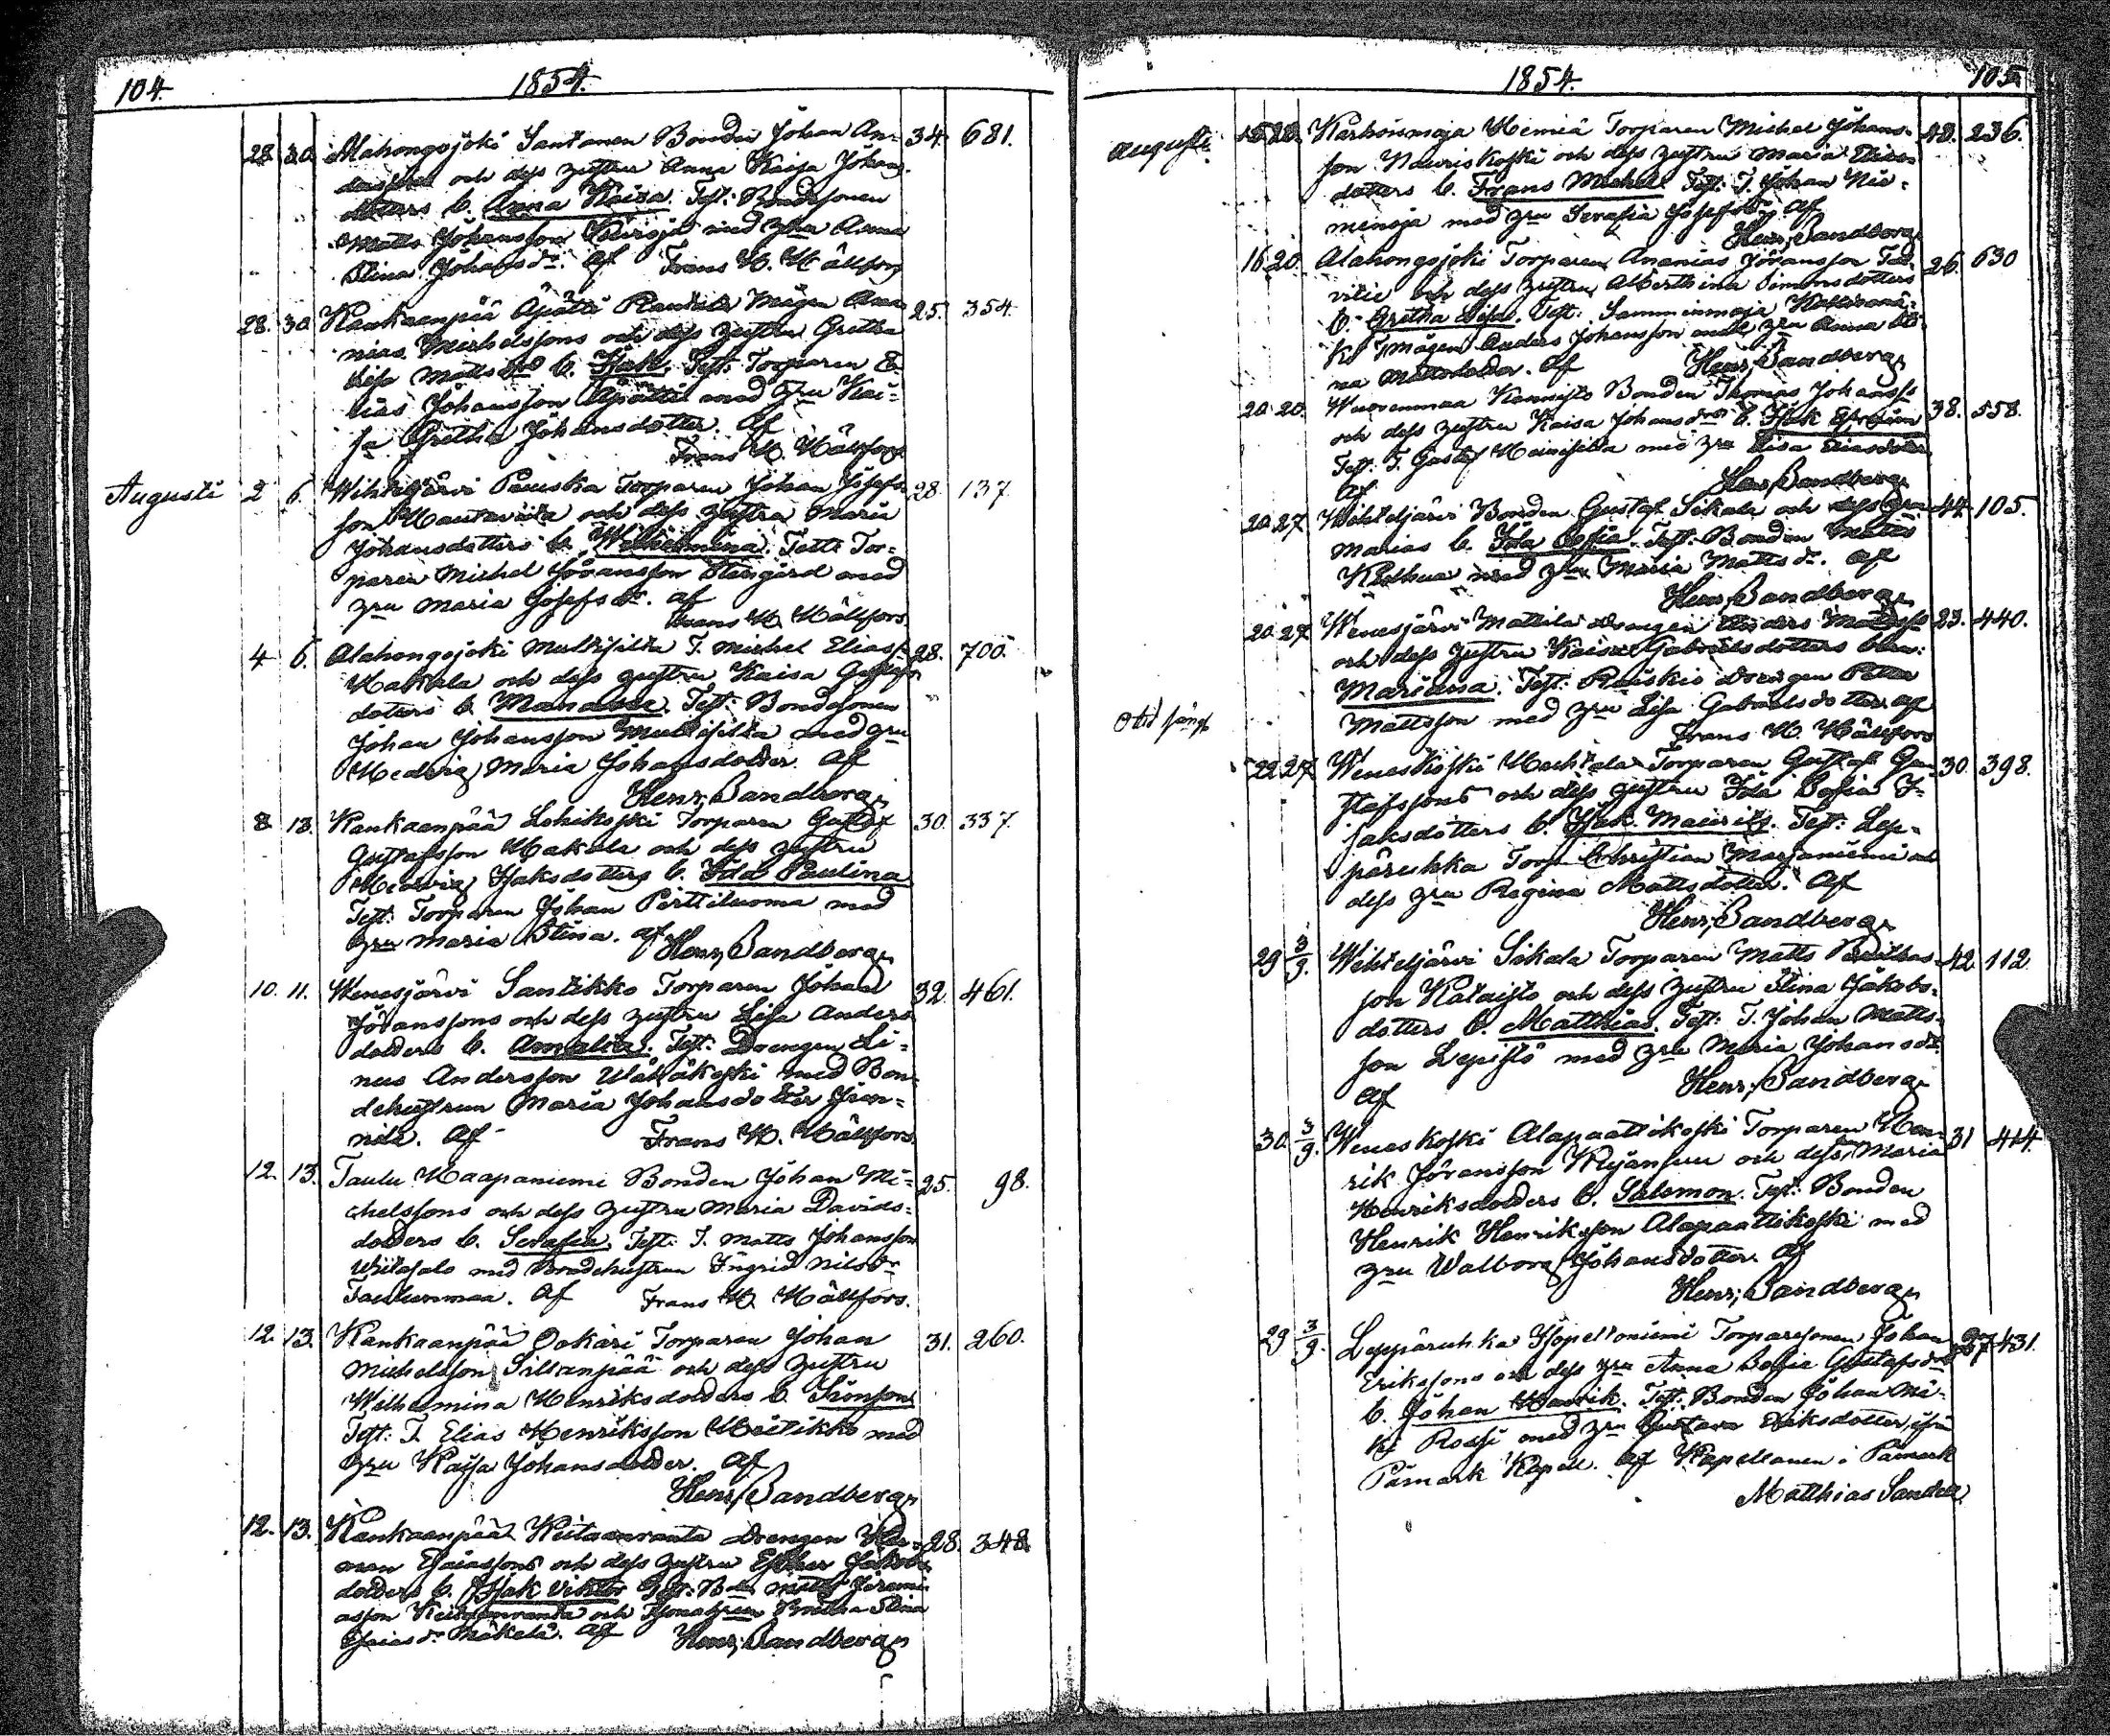 104. 1854.
28. 30. Alahongojoki Santanen Bonden Johan An- 34. 681.
och dess hustru Anna Kaisa Johans-
dotters b. Anna Kaisa. Test: Bondesonen
Matts Johansson med hru Anna
Stina Johansdr. af Frans H. Hällfors
28. 30. Kankaanpää Äpätti Mågen Ana- 25. 354.
nias Michelssons och dess hustru Gretha
Lisa Matts drs b. Isak. Test: Torparen E-
lias Johansson Äpätti med hru Kai-
sa Gretha Johansdotter. Af
Frans H. Hällfors
Augusti 2 6. Wihteljärvi Pauska Torparen Johan Josefs- 28. 137.
son och dess hustru Maria
Johansdotters b. Wilhelmina. Test: Tor-
paren Michel Göransson Stengård med
hru Maria Josefs dr. af
Frans H. Hällfors
4 6. Alahongojoki Multisilta T. Michel Eliass. 28. 700.
Hakala och dess hustru Kaisa Gustafs
doters b. Manasse. Test: Bondesonen
Johan Johansson Multisilta med hru
Hedvig Maria Johansdotter. Af
Henr. Sandberg
8 13. Kankaanpää Lohikoski Torparen Gustaf 30. 337.
Gustafsson Hakala och dess hustru
Hedvig Isaksdotters b. Ida Paulina
Test: Torparen Johan Perttiluoma med
hru Maria Stina. af Henr. Sandberg
10. 11. Wenesjärvi Santikko Torparen Johan 32. 461.
Göranssons och dess hustru Lisa Anders
dotters b. Amalia. Test: Drengen Li-
nus Andersson med Bon-
dehustrun Maria Johansdotter
Af Frans H. Hällfors
12. 13. Taulu Haapaniemi Bonden Johan Mi- 25. 98.
chelssons och dess hustru Maria Davids-
dotters b. Serafia. Test: T. Matts Johansson
Uitosalo med Bondehustrun Ingrid Nilsdr
Taulunmaa. Af Frans H. Hällfors.
12. 13. Kankaanpää Ookari Torparen Johan 31. 260.
Michelsson Sillanpää och dess hustru
Wilhelmina Henriksdotters b. Simson
Test: T. Elias Henriksson med
hru Kaisa Johansdotter. Af
Henr. Sandberg
12. 13. Kankaanpää Keitaanranta Drengen Her- 28. 348.
man Esaiassons och dess hustru Esther Jakobs
dotters b. Isak Viktor Test: B-n Matts Jeremi-
asson Keitaanranta och Stina
Esaias dr Mäkelä. Af Henr. Sandberg
1854. 105.
Augusti. 15. 20. Karhoismaja Hemiä Torparen Michel Johans- 43. 236.
son Nauriskoski och dess hustru Maria Elias
dotters b. Frans Michel. Test: T. Johan Nie-
menoja med hru Serafia Josefsdr af
Henr. Sandberg
16 20. Alahongojoki Torparen Ananias Göransson 26. 630
och dess hustru Alberthina Simonsdotters
b. Gretha Lisa. Test: Samminmaja
Mågen Anders Johansson med hru Anna Sti-
na Mattsdotter. Af Henr. Sandberg
20. 20. Wuorenmaa Bonden Thomas Johanss. 38. 558.
och dess hustru Kaisa Johansdrs b. Isak Efraim
Test: T. Gustaf med hru Lisa Eliasdotter
Af Henr. Sandberg
20 27 Wihteljärvi Bonden Gustaf Sikala och dess hru 44. 105.
Marias b. Ida Sofia. Test: Bonden Matts
med hru Maria Matts dr. Af
Henr. Sandberg
20 27 Wenesjärvi Mattila Drengen Anders Mattss. 23. 440.
och dess hustru Kaisa Gabrielsdotters
Mariana. Test: Drengen Petter
Mattsson med hru Lisa Gabrielsdotter. Af
Frans H. Hällfors
22. 27 Weneskoski Torparen Gustaf Gu- 30. 398.
stafssons och dess hustru Ida Sofia I-
saksdotters b. Isak Maurits. Test: Lep-
päruhka Torp. Christian Marjaniemi
dess hru Regina Mattsdotter. Af
Henr. Sandberg
29 3/9. Wihteljärvi Sikala Torparen Matts 42 112
son Kataisto och dess hustru Stina Jakobs-
dotters b. Matthias. Test: T. Johan Matts-
son Lepistö med hru Maria Johans dr
Af Henr. Sandberg
30. 3/9. Weneskoski Alapaattikoski Torparen Hen- 31 414.
rik Göransson och dess hru Maria
Henriksdotters b. Salomon. Test: Bonden
Henrik Henriksson Alapaattikoski med
hru Walborg Johansdotter. Af
Henr. Sandberg
29 3/9. Leppäruhka Torparesonen Johan 27 431.
Erikssons och dess hru Anna Sofia Gustafsdrs
b. Johan Henrik. Test: Bonden Johan Mi-
med hru Gustava Eriksdotter ifrån
Påmark Kapell. Af Kapellanen i Påmark
Matthias Sandell